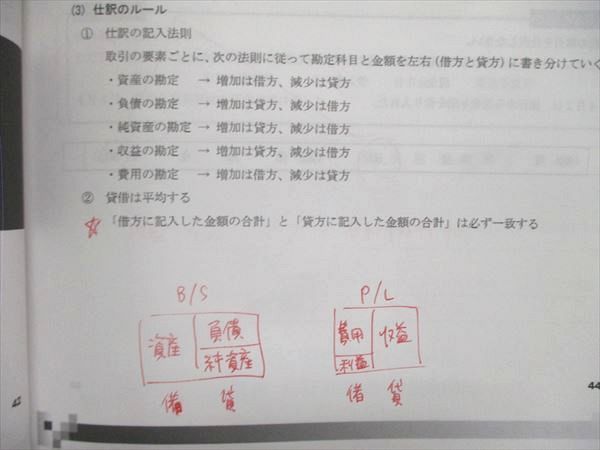 (3) 仕訳のルール
① 仕訳の記入法則
取引の要素ごとに、次の法則に従って勘定科目と金額を左右(借方と貸方)に書き分けていく
・資産の勘定 → 増加は借方、減少は貸方
・負債の勘定 → 増加は貸方、減少は借方
・純資産の勘定 → 増加は貸方、減少は借方
・収益の勘定 → 増加は貸方、減少は借方
・費用の勘定 → 増加は借方、減少は貸方
② 貸借は平均する
☆「借方に記入した金額の合計」と「貸方に記入した金額の合計」は必ず一致する
B/S
資産 負債
純資産
借 貸
P/L
費用 収益
利益
借 貸
44